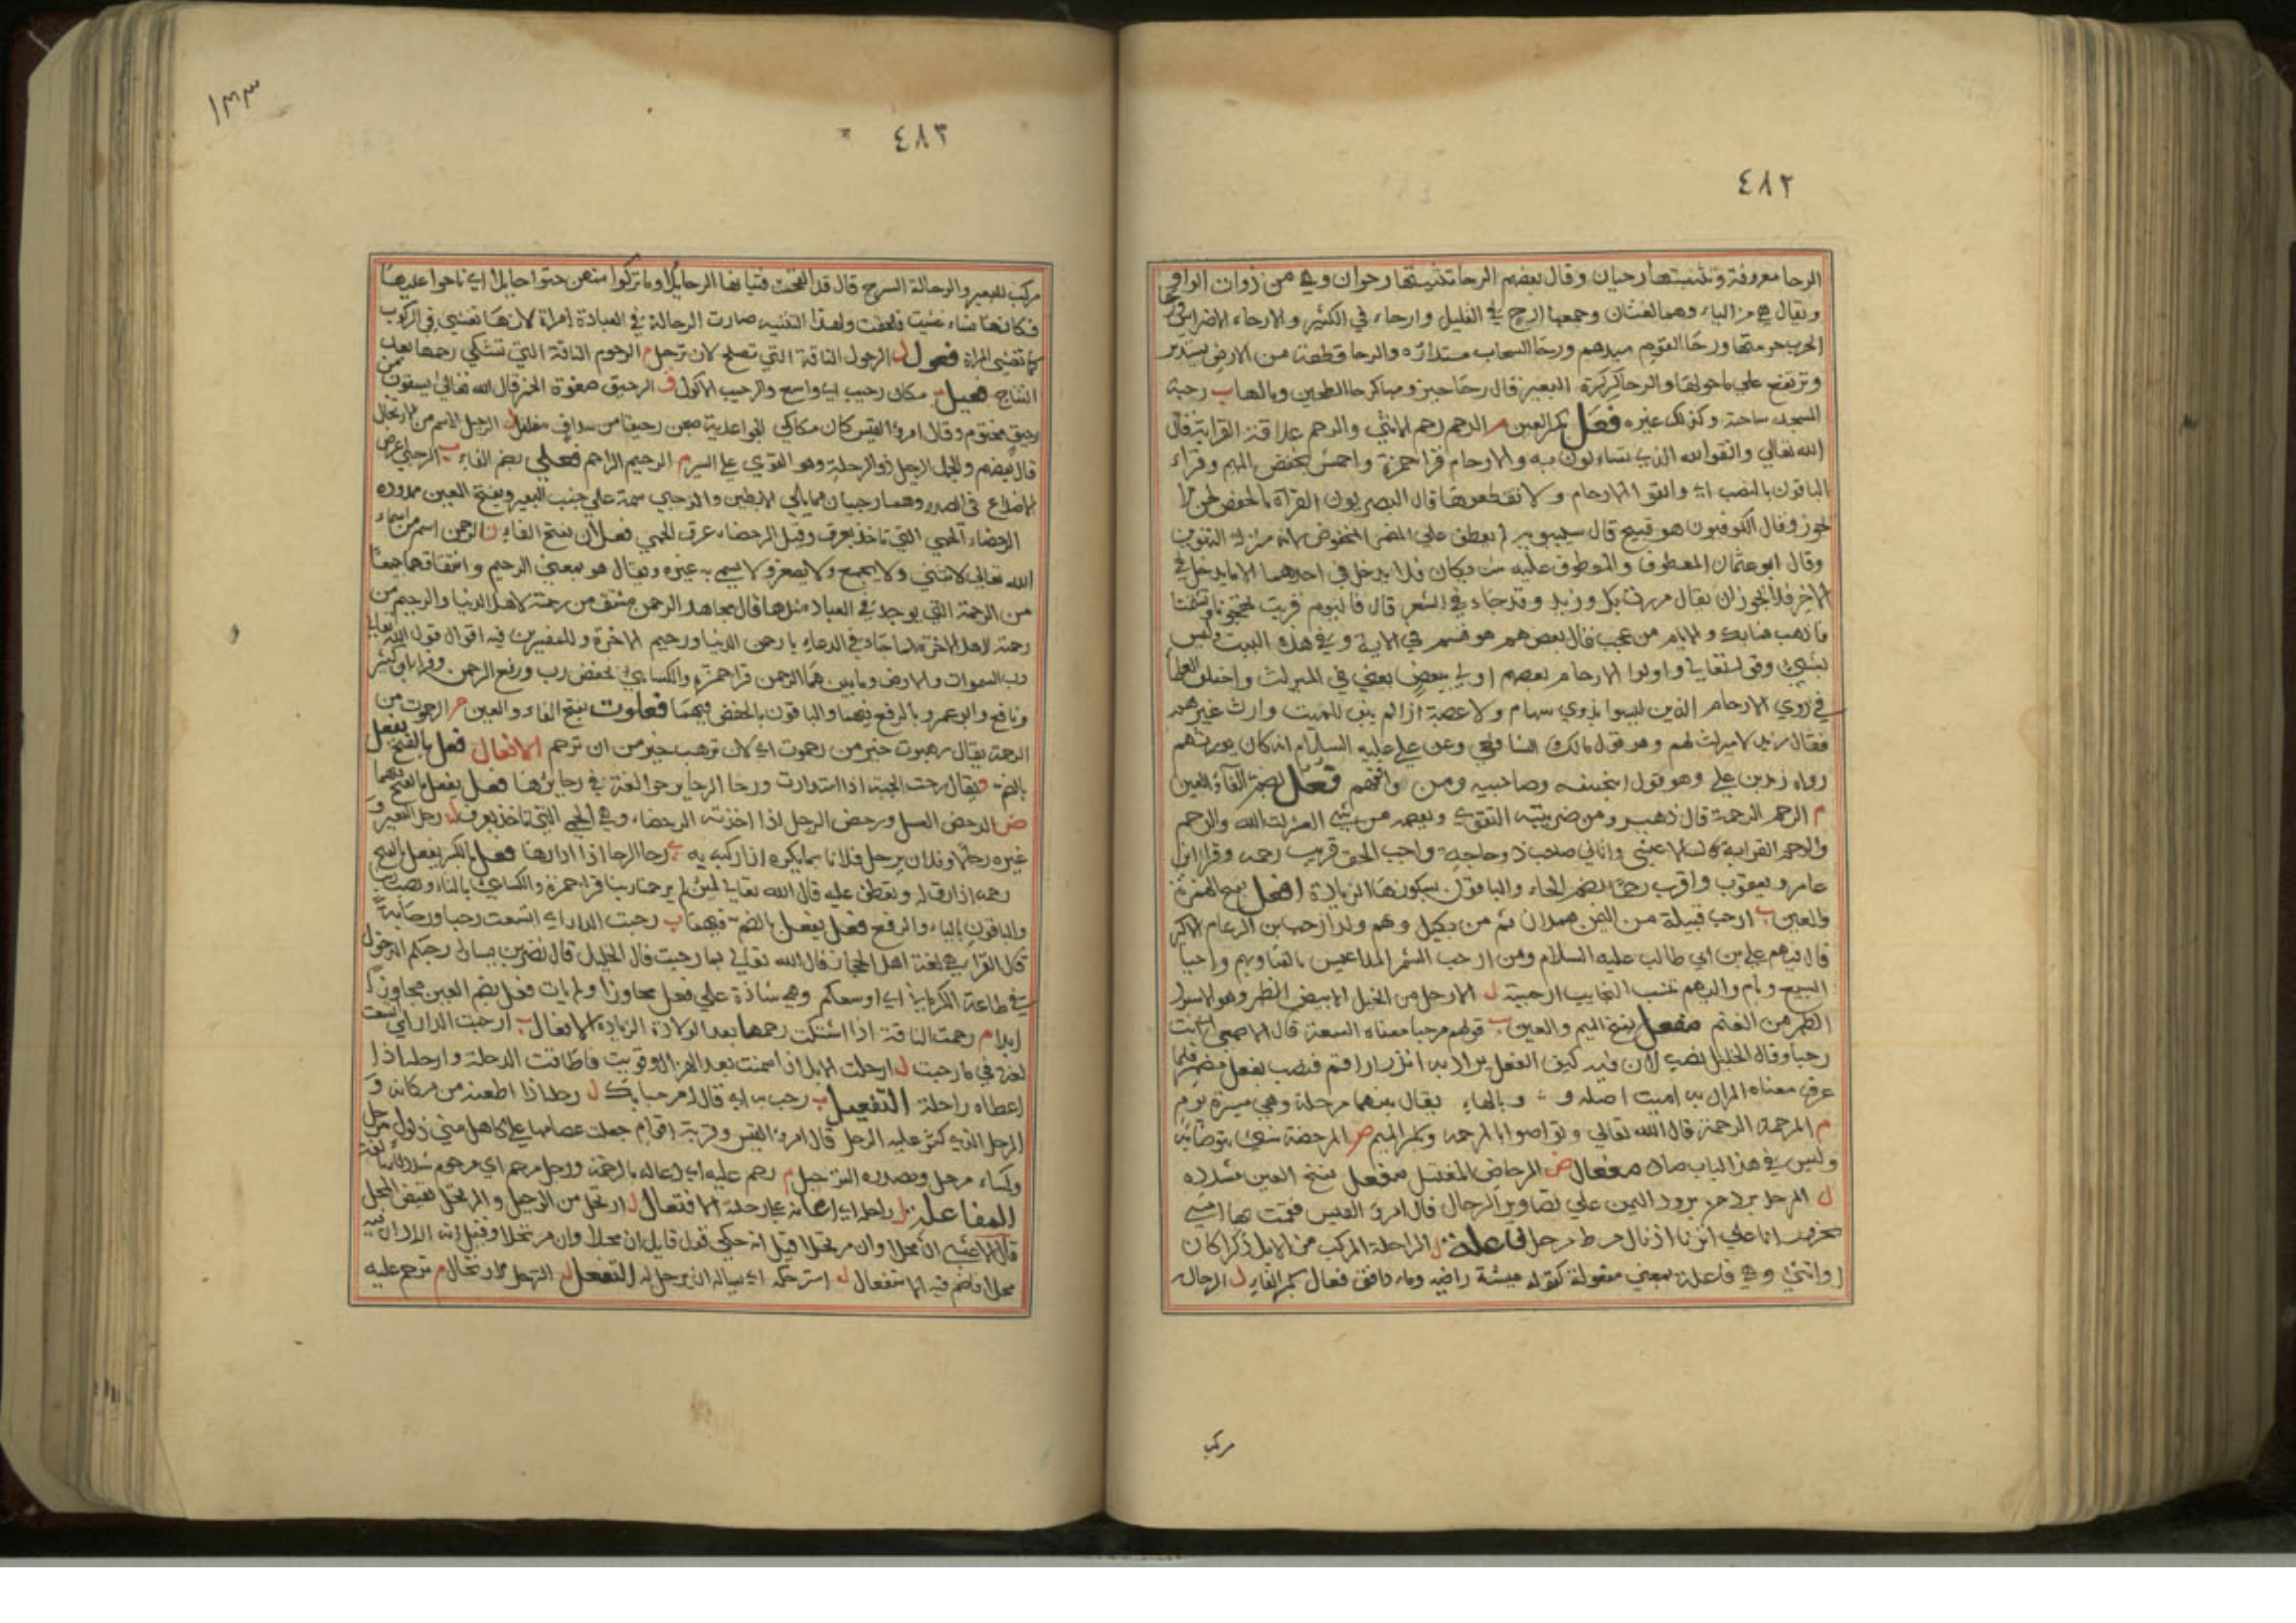 ٤٨٢
الرحا معروفة وتثنيتها رحيان وقال بعضهم الرحا تثنيتها رحوان وهي من ذوات الواو
ويقال هي من الياء وهما لغتان وجمعها ارح في القليل وارحاء في الكثير والارحاء الاضراس
الحرب حومتها ورحا القوم سيدهم ورحا السحاب مستداره والرحا قطعة من الارض تستدير
وترتفع على ما حولها والرحا كركرة البعير قال رحا حيزومها كرحا الطحين وبالهاء ب رحبة
المسجد ساحته وكذلك غيره فعل بكسر العين م الرحم رحم الانثى والرحم علاقة القرابة قال
الله تعالى واتقوا الله الذي تساءلون به والارحام قرا حمزة بخفض الميم وقراء
الباقون بالنصب اي واتقوا الارحام ولا تقطعوها قال البصريون القراة بالخفض لحن لا
تجوز وقال الكوفيون هو قبيح قال سيبويه لم يعطف على المضمر المخفوض لانه بمنزلة التنوين
وقال ابو عثمان المعطوف والمعطوف عليه شريكان فلا يدخل في احدهما الا ما يدخل في
الاخر فلا يجوز ان يقال مررت بك وزيد وقد جاء في الشعر قال فاليوم قربت تهجونا وتشتمنا
فاذهب فما بك والايام من عجب قال بعضهم هو قسم في الاية وفي هذا البيت وليس
بشيء وقوله تعالى واولوا الارحام بعضهم اولى ببعض يعني في الميراث واختلف العلماء
في ذوي الارحام الذين ليسوا بذوي سهام ولا عصبة اذا لم يبق للميت وارث غيرهم
فقال زيد لا ميراث لهم وهو قول مالك الشافعي وعن علي عليه السلام انه كان يورثهم
رواه زيد بن علي وهو قول ابي حنيفه وصاحبيه ومن وافقهم فعل بضم الفاء والعين
م الرحم الرحمة قال زهير ومن ضريبته التقوى ويعصمه من سيئ العثرات الله والرحم
والرحم القرابة قال الاعشى واتاني صاحب ذو حاجة واجب الحق قريب رحمه وقرا ابن
عامر ويعقوب واقرب رحما بضم الحاء والباقون بسكونها الزيادة افعل بفتح الهمزة
والعين ب ارحب قبيلة من اليمن من همدان ثم من بكيل وهم ولد ارحب بن الدعام الاكبر
قال فيهم علي بن ابي طالب عليه السلام ومن ارحب الشم المداعيس بالقنا ونهم واحيا
السبيع ويام واليهم تنسب النجايب ارحبية ل الارحل من الخيل الابيض الظهر وهو الاسود
الظهر من الغنم مفعل بفتح الميم والعين ب قولهم مرحبا معناه السعة قال الاصمعي اي اتيت
رحبا وقال الخليل نصب لان فيه كمين الفعل يراد به انزل او اقم فنصب بفعل مضمر فلما
عرف معناه المراد به اميت اصله وبالهاء يقال بينهما مرحلة وهي مسيرة يوم
م المرحمة الرحمة قال الله تعالى وتواصوا بالمرحمه وبكسر الميم ض المرحضة شيء يتوضا به
وليس في هذا الباب صاد مفعال ض المرحاض المغتسل مفعل بفتح العين مشدده
ل المرحل برد من برود اليمن على تصاوير الرحال قال امرؤ القيس فقمت بها امشي
تجر وراءنا على اثرنا اذيال مرط مرحل فاعلة ل الراحلة المركب من الابل ذكرا كان
او انثى وهي فاعلة بمعنى مفعولة كقوله عيشة راضيه وماء دافق فعال بكسر الفاء ل الرحال
مركب
١٣٣
٤٨٣
مركب للبعير والرحالة السرج قال فتيانها الرحايلا وما تركوا منهن حتوا حايلا اي ناحوا عليها
فكانها نساء ولهذا التشبيه صارت الرحالة في العبادة امراة لانها تغشى في الركوب
كما تغشى المراة فعول ل الرحول الناقة التي تصلح لان ترحل م الرحوم الناقة التي تشتكي رحمها بعد
النتاج فعيل ب مكان رحيب اي واسع والرحيب الاكول ق الرحيق صفوة الخمر قال الله تعالى يسقون من
رحيق مختوم وقال امرؤ القيس كان مكاكي الجواء غدية صبحن رحيقا من سلاف مفلفل ل الرحيل الاسم من الارتحال
قال بعضهم والجمل الرحيل ذو الرحلة وهو القوي على السير م الرحيم الراحم فعلى بضم الفاء ب الرحبى اعرض
الاضلاع في الصدر وهما رحبيان مما يلي الابطين والرحبى سمة على جنب البعير وبفتح العين ممدوده
الرحضاء الحمى التي تاخذ بعرق وقيل الرحضاء عرق الحمى فعلان بفتح الفاء م الرحمن اسم من اسماء
الله تعالى لا يثنى ولا يجمع ولا يصغر ولا يسمى به غيره ويقال هو بمعنى الرحيم واشتقاقهما جميعا
من الرحمة التي يوجد في العباد مثلها قال مجاهد الرحمن مشتق من رحمة لاهل الدنيا والرحيم من
رحمة لاهل الاخرة كما جاء في الدعاء يا رحمن الدنيا ورحيم الاخرة وللمفسرين فيه اقوال قول الله تعالى
رب السموات والارض وما بينهما الرحمن قرا حمزة والكسائي بخفض رب ورفع الرحمن وقرا ابن كثير
ونافع وابو عمرو بالرفع فيهما والباقون بالخفض فيهما فعلوت بفتح الفاء والعين م الرحموت من
الرحمة يقال رهبوت خير من رحموت اي لان ترهب خير من ان ترحم الافعال فعل بالفتح يفعل
بالضم و يقال رحت الحية اذا استدارت ورحا الرحا يرحو لغة في رحا يرحاها فعل يفعل بالفتح فيهما
ض الرحض الغسل ورحض الرجل اذا اخذته الرحضاء وهي الحمى التي تاخذ بعرق ل رحل البعير و
غيره رحلا وفلان يرحل فلانا بما يكره اذا ركبه به ي رحا الرحا اذا ادارها فعل بالكسر يفعل بالفتح
رحمه اذا رق له وتعطف عليه قال الله تعالى لئن لم يرحمنا ربنا قرا حمزة والكسائي بالتاء ونصب رب
والباقون بالياء والرفع فعل يفعل بالضم فيهما ب رحبت الدار اي اتسعت رحبا ورحابة
قال الفراء هي لغة اهل الحجاز قال الله تعالى بما رحبت قال الخليل قال نصر بن سيار رحبكم الدخول
في طاعة الكرماني اي اوسعكم وهي شاذة على فعل مجاوزا ولم يات فعل بضم العين مجاوزا
ابدا م رحمت الناقة اذا اشتكت رحمها بعد الولادة الزيادة الافعال ب ارحبت الدار اي اتسعت
لغة في رحبت ل ارحلت الابل اذا سمنت بعد الهزال وقويت فاطاقت الرحلة وارحله اذا
اعطاه راحلة التفعيل ب رحب به اي قال له مرحبا بك ل رحله اذا اظعنه من مكانه و
المرحل الذي كثر عليه الرحل قال امرؤ القيس وقربة اقوام جعلت عصامها على كاهل مني ذلول مرحل
وكساء مرحل ومصدره الترحيل م رحم عليه اي دعا له بالرحمة ورجل مرحم اي مرحوم شدد للمبالغة
المفاعلة ل راحله اي اعانه على رحلته الافتعال ل ارتحل من الرحيل والمرتحل نقيض المحل
قال الاعشى ان محلا وان مرتحلا قيل انه حكى قول قايل ان محلا وان مرتحلا وقيل انه اراد ان فيه
محلا فاضمر فيه الاستفعال ل استرحله اي ساله ان يرحل له التفعل ل الترحل الارتحال م ترحم عليه